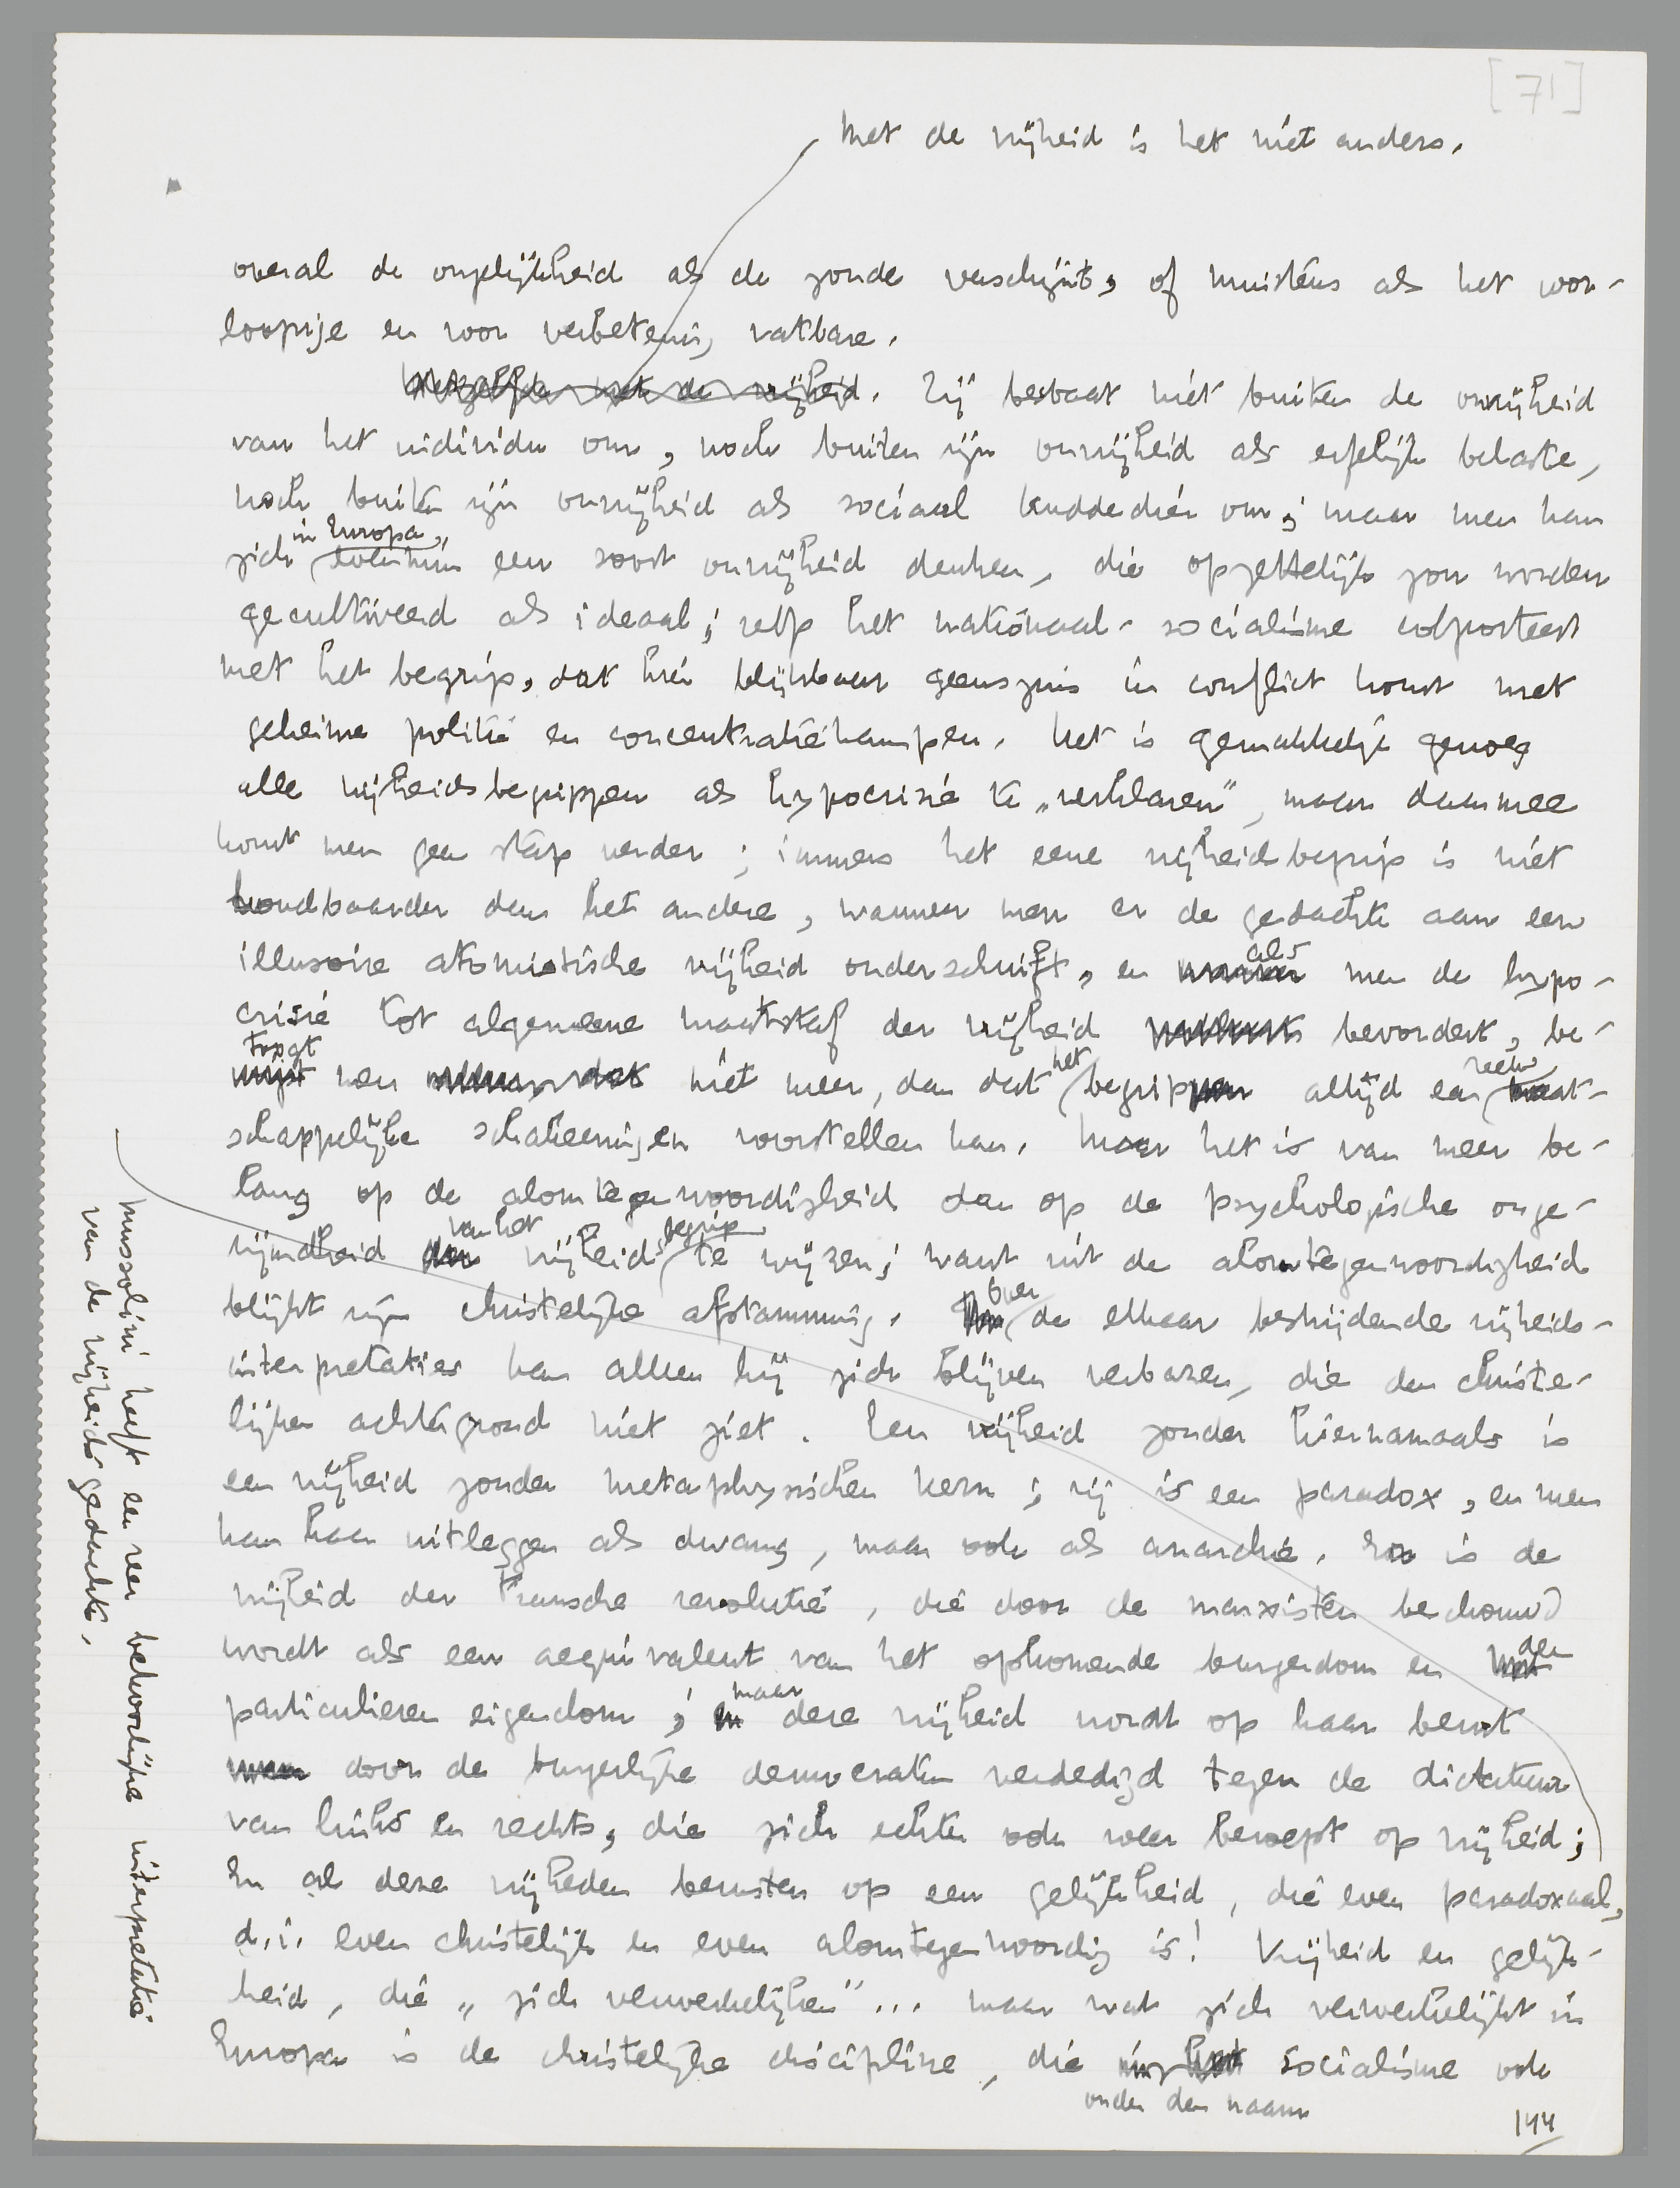 [71]
Met de vrijheid is het niet anders.
overal de ongelijkheid als de zonde verschijnt, of minstens als het voor-
loopige en voor verbetering vatbare.
Hetzelfde met de vrijheid. Zij bestaat niet buiten de onvrijheid
van het individu om, noch buiten zijn onvrijheid als erfelijk belaste,
noch buiten zijn onvrijheid als sociaal kuddedier om; maar men kan
in Europa
zich evenmin een soort onvrijheid denken, die opzettelijk zou worden
gecultiveerd als ideaal; zelfs het nationaal-socialisme colporteert
met het begrip, dat hier blijkbaar geenszins in conflict komt met
geheime politie en concentratiekampen. Het is gemakkelijk genoeg
alle vrijheidsbegrippen als hypocrisie te „verklaren”, maar daarmee
komt men geen stap verder; immers het eene vrijheidsbegrip is niet
houdbaarder dan het andere, wanneer men er de gedachte aan een
illusoire atomistische vrijheid onderschuift, en als men de hypo-
crisie tot algemeene maatstaf der vrijheid bevordert, be-
toogt men niet meer, dan dat het begrip altijd een reeks maat-
schappelijke schakeeringen voorstellen kan. Maar het is van meer be-
lang op de alomtegenwoordigheid dan op de psychologische onge-
rijmdheid van het vrijheidsbegrip te wijzen; want uit de alomtegenwoordigheid
blijkt zijn christelijke afstamming. Over de elkaar bestrijdende vrijheids-
interpretaties kan alleen hij zich blijven verbazen, die den christe-
lijken achtergrond niet ziet. Een vrijheid zonder hiernamaals is
een vrijheid zonder metaphysischen kern; zij is een paradox, en men
kan haar uitleggen als dwang, maar ook als anarchie. Zoo is de
vrijheid der Fransche revolutie, die door de marxisten beschouwd
wordt als een aequivalent van het opkomende burgerdom en den
particulieren eigendom; maar deze vrijheid wordt op haar beurt
door de burgerlijke democraten verdedigd tegen de dictatuur
van links en rechts, die zich echter ook weer beroept op vrijheid;
En al deze vrijheden berusten op een gelijkheid, die even paradoxaal,
d.i. even christelijk en even alomtegenwoordig is! Vrijheid en gelijk-
heid, die „zich verwerkelijken”... maar wat zich verwerkelijkt in
Europa is de christelijke discipline, die in het socialisme ook
onder den naam
144
Mussolini heeft een zeer behoorlijke interpretatie
van de vrijheidsgedachte.